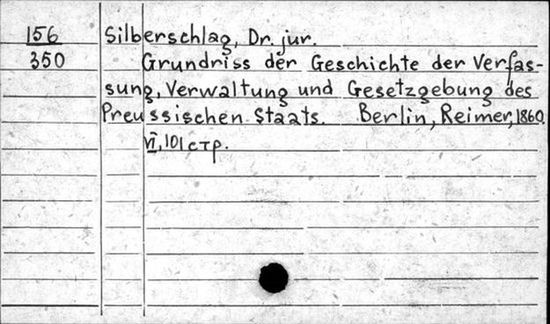 156 Silberschlag, Dr. jur.
350 Grundriss der Geschichte der Verfas-
sung, Verwaltung und Gesetzgebung des
Preussischen Staats. Berlin, Reimer, 1860.
VI, 101 стр.